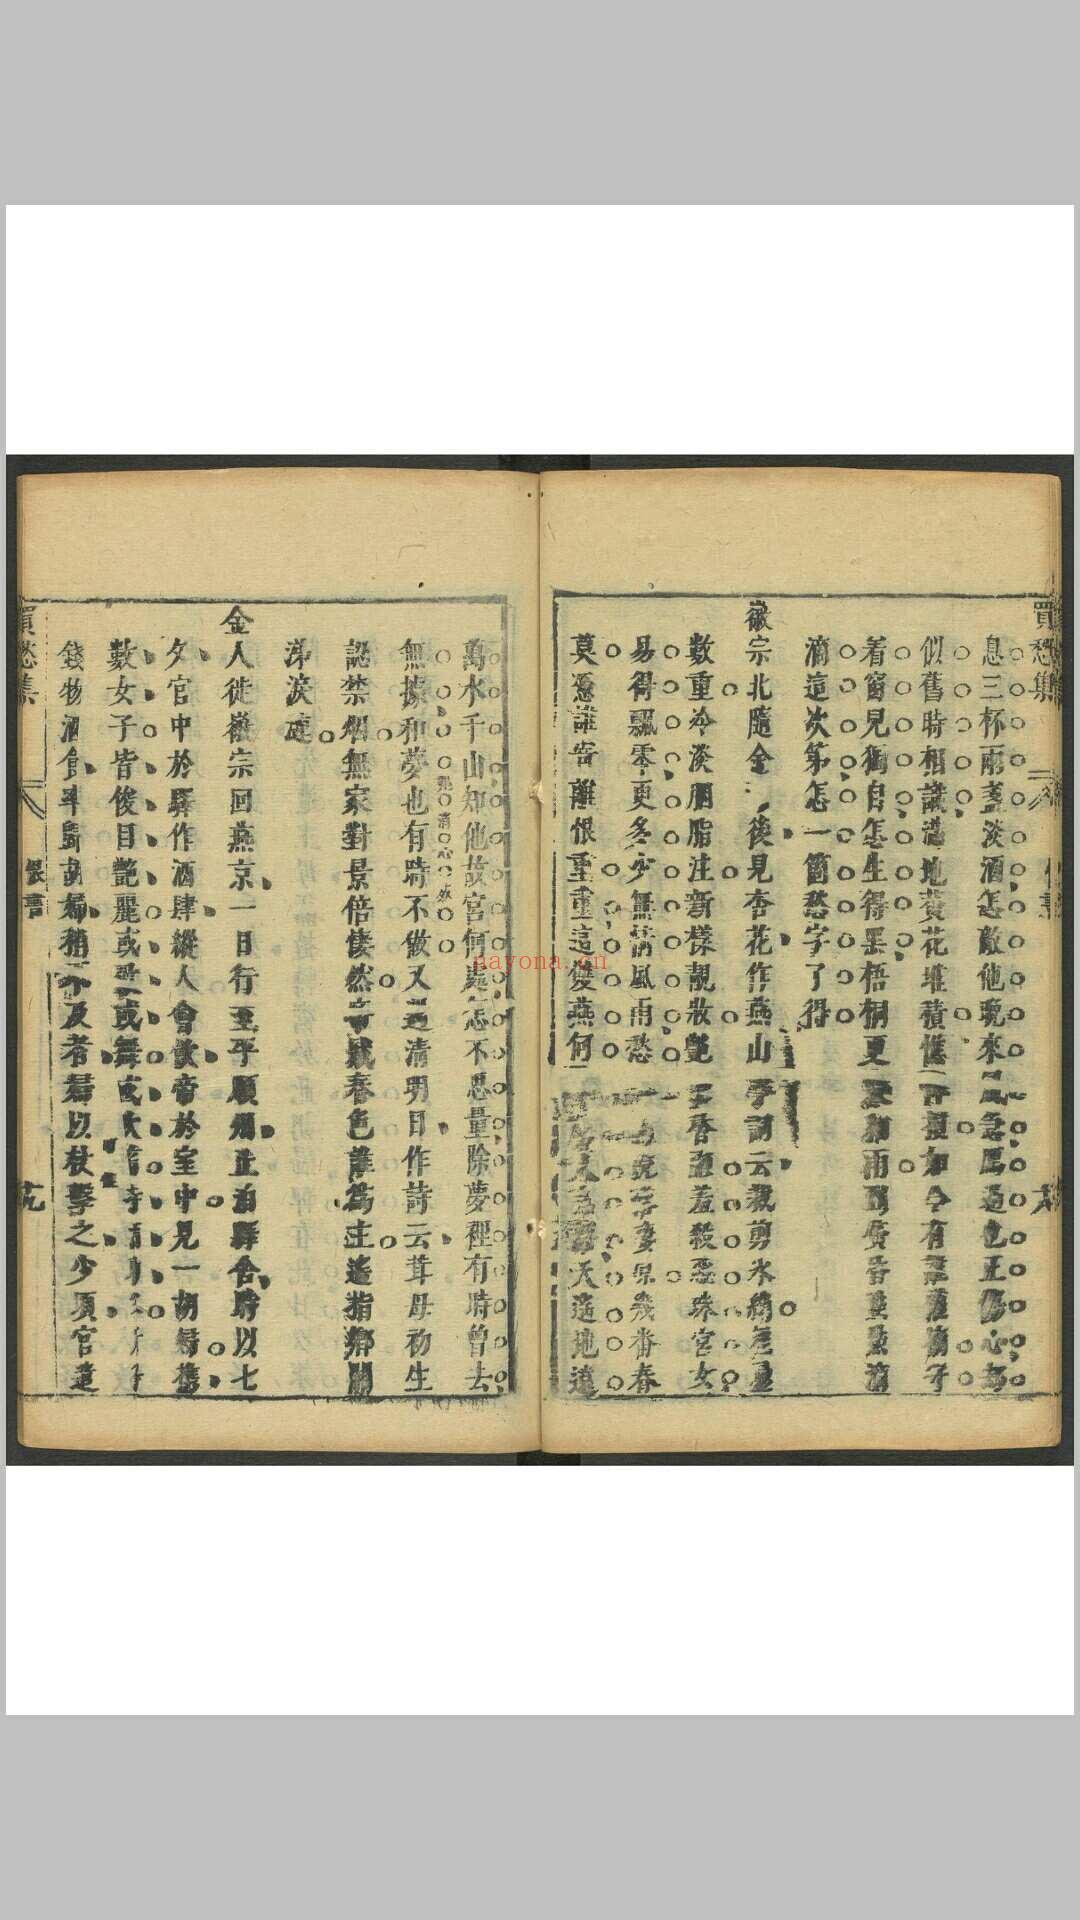 買愁集
息三杯兩盞淡酒怎敵他晚來風急鴈過也正傷心却
似舊時相識滿地黃花堆積憔
如今有誰
着窗兒獨自怎生得黑梧桐更
雨到黃昏點點滴
滴這次第怎一箇愁字了得
徽宗北隨金
後見杏花作燕山亭詞云裁剪冰綃
數重冷淡胭脂注新樣靚妝艷
香
羞殺蕊珠宮女
易得飄零更多少無情風雨愁
幾番春
莫憑誰寄離恨重重這雙燕何
天遙地遠
萬水千山知他故宮何處怎不思量除夢裡有時曾去
無據和夢也有時不做又過清明日作詩云茸母初生
認禁烟無家對景倍悽然
春色誰為主遙指鄉關
涕淚漣
金人徙徽宗回燕京一日行至平順州止泊驛舍時以七
夕官中於驛作酒肆縱人會飲帝於室中見一胡婦携
數女子皆俊目艷麗或
或舞或
錢物酒食率歸胡婦稍不及者
以杖擊之少頃官遣
買愁集
nayona.cn